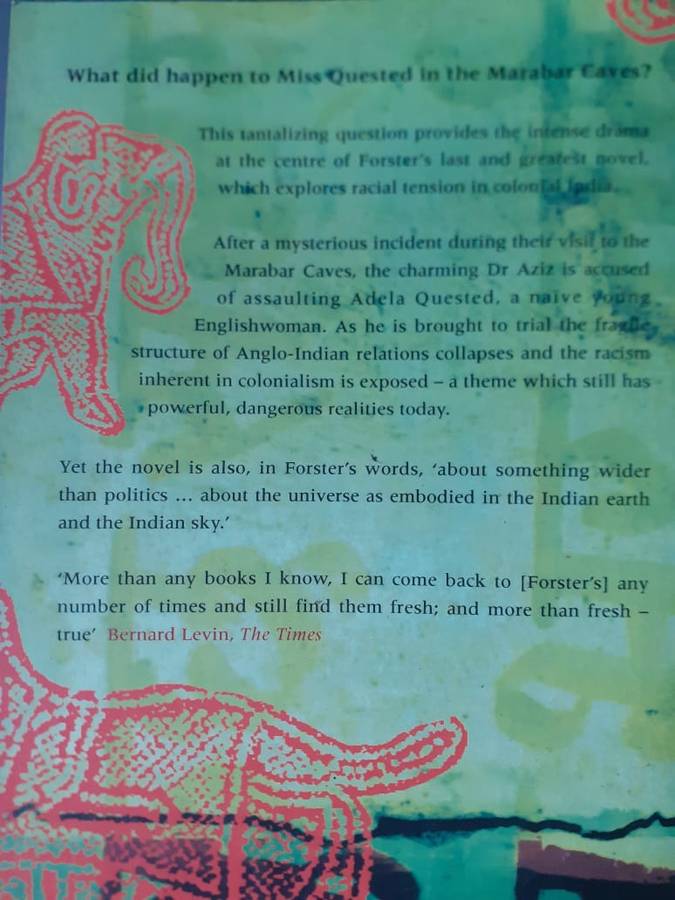 What did happen to Miss Quested in the Marabar Caves?
This tantalizing question provides the intense drama
at the centre of Forster's last and greatest novel,
which explores racial tension in colonial India.
After a mysterious incident during their visit to the
Marabar Caves, the charming Dr Aziz is accused
of assaulting Adela Quested, a naive young
Englishwoman. As he is brought to trial the fragile
structure of Anglo-Indian relations collapses and the racism
inherent in colonialism is exposed – a theme which still has
powerful, dangerous realities today.
Yet the novel is also, in Forster's words, 'about something wider
than politics ... about the universe as embodied in the Indian earth
and the Indian sky.'
'More than any books I know, I can come back to [Forster's] any
number of times and still find them fresh; and more than fresh –
true' Bernard Levin, The Times